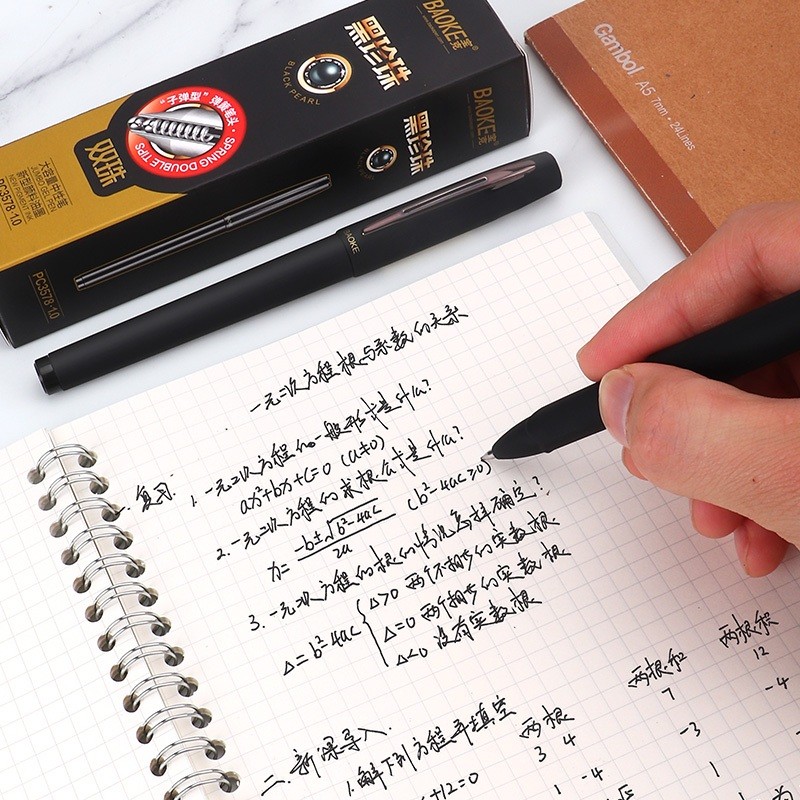 BAOKE 宝克®
黑珍珠
BLACK PEARL
"子弹型"弹簧笔头
SPRING DOUBLE TIPS
双珠
大容量中性笔
JUMBO GEL PEN
新型颜料墨水
NEW PIGMENT INK
PC3578·1.0
BAOKE 宝克
黑珍珠
PC3578·1.0
BAOKE
Gambol A5 7mm · 24Lines
一元二次方程根与系数的关系
一. 复习
1. 一元二次方程的一般形式是什么?
ax²+bx+c=0 (a≠0)
2. 一元二次方程的求根公式是什么?
x= -b±√b²-4ac / 2a (b²-4ac≥0)
3. 一元二次方程的根的情况怎样确定?
Δ=b²-4ac { Δ>0 两个不相等的实数根
Δ=0 两个相等的实数根
Δ<0 没有实数根
二. 新课导入.
1. 解下列方程并填空
两根 两根和 两根积
+12=0 3 4 7 12
1 -4 -3 -4
1